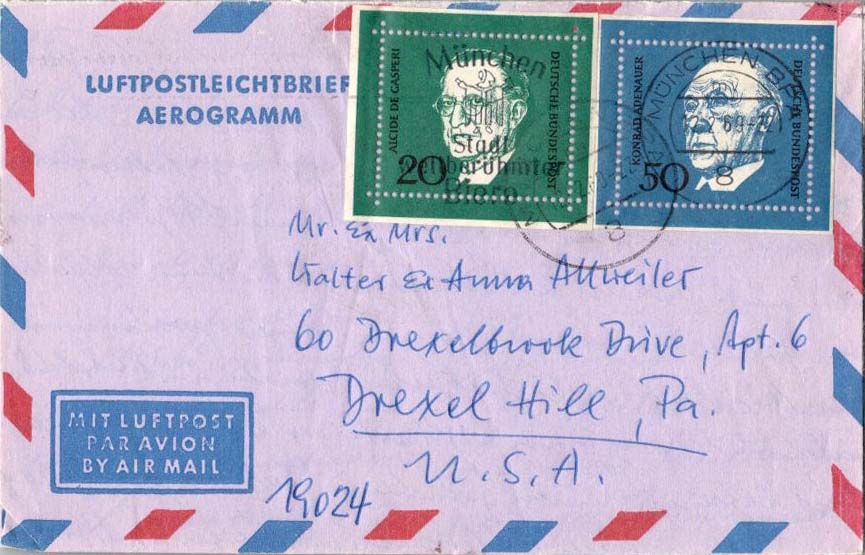 LUFTPOSTLEICHTBRIEF
AEROGRAMM
ALCIDE DE GASPERI
20
DEUTSCHE BUNDESPOST
München
Stadt
weltberühmter
Biere
KONRAD ADENAUER
50
DEUTSCHE BUNDESPOST
MÜNCHEN
8
8
Mr. & Mrs.
Walter & Anna Allweiler
60 Drexelbrook Drive, Apt. 6
Drexel Hill, Pa.
U.S.A.
19024
MIT LUFTPOST
PAR AVION
BY AIR MAIL